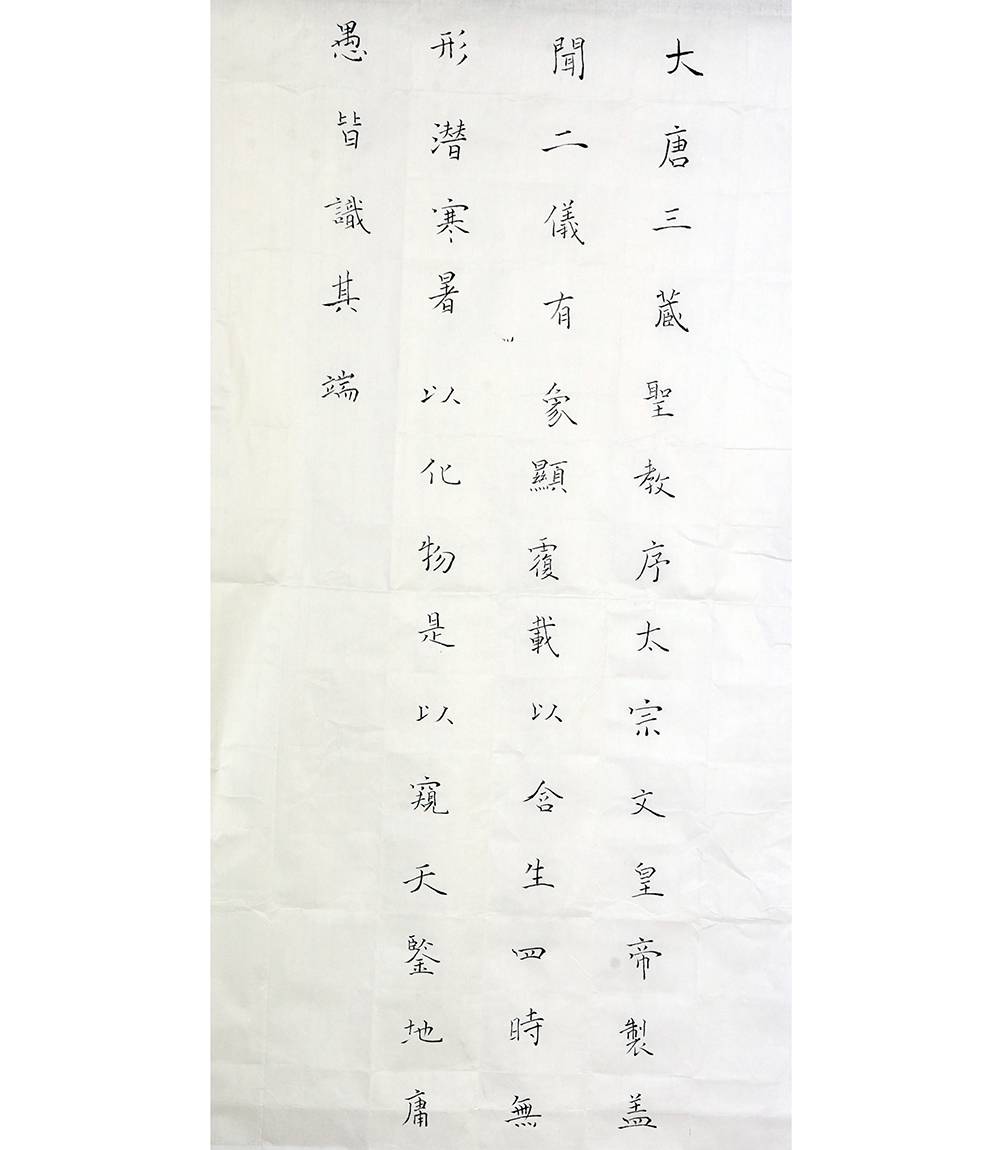 大唐三蔵聖教序太宗文皇帝製盖
聞二儀有象顯覆載以含生四時無
形潜寒暑以化物是以窺天鑒地庸
愚皆識其端